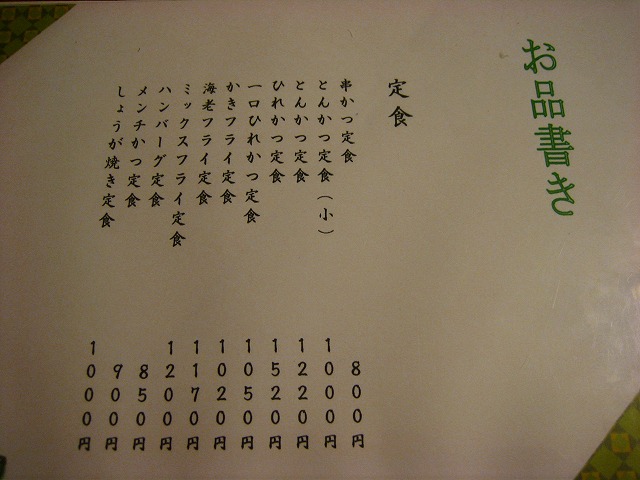 お品書き
定食
串かつ定食 800円
とんかつ定食(小) 1000円
とんかつ定食 1220円
ひれかつ定食 1520円
一口ひれかつ定食 1050円
かきフライ定食 1020円
海老フライ定食 1170円
ミックスフライ定食 1200円
ハンバーグ定食 850円
メンチかつ定食 900円
しょうが焼き定食 1000円